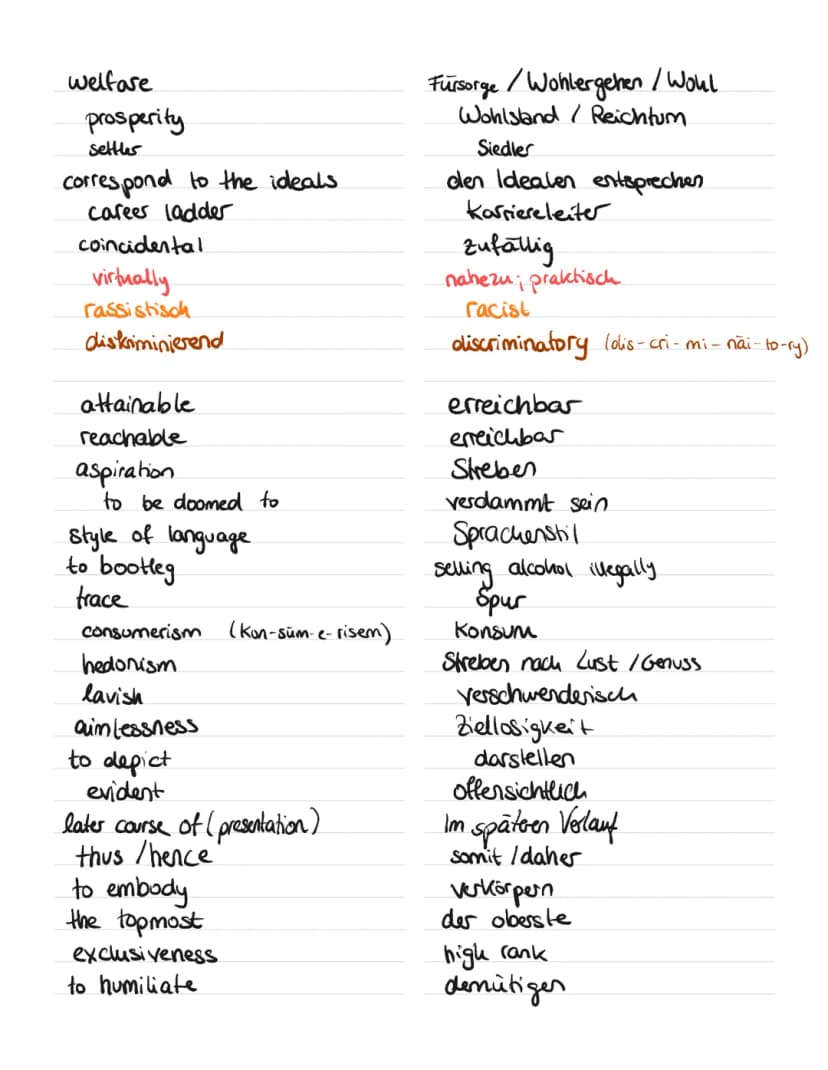 welfare Fürsorge / Wohlergehen / Wohl
prosperity Wohlstand / Reichtum
settler Siedler
correspond to the ideals den Idealen entsprechen
career ladder Karriereleiter
coincidental zufällig
virtually nahezu; praktisch
rassistisch racist
diskriminierend discriminatory (dis-cri-mi-näi-to-ry)
attainable erreichbar
reachable erreichbar
aspiration Streben
to be doomed to verdammt sein
style of language Sprachenstil
to bootleg selling alcohol illegally
trace Spur
consumerism (kon-süm-e-risem) Konsum
hedonism Streben nach Lust / Genuss
lavish verschwenderisch
aimlessness Ziellosigkeit
to depict darstellen
evident offensichtlich
later course of (presentation) Im späteren Verlauf
thus / hence somit / daher
to embody verkörpern
the topmost der oberste
exclusiveness high rank
to humiliate demütigen